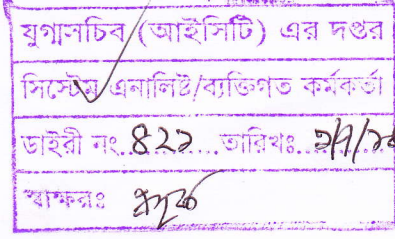 যুগ্মসচিব (আইসিটি) এর দপ্তর
সিস্টেম এনালিষ্ট/ব্যক্তিগত কর্মকর্তা
ডাইরী নং..৪২১.........তারিখঃ..
স্বাক্ষরঃ